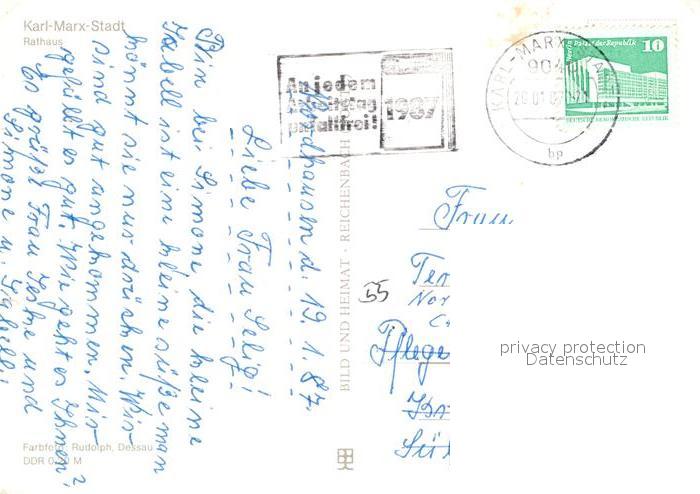 Karl-Marx-Stadt
Rathaus
An jedem
Arbeitstag
unfallfrei!
1987
KARL-MARX-STADT
904
20.01.87
bp
Berlin, Palast der Republik
10
DEUTSCHE DEMOKRATISCHE REPUBLIK
Nordhausen d. 19.1.87.
Liebe Frau Selig!
Bin bei Simone die kleine
Isabell ist eine kleine süße man
könnt sie nur drücken. Wir
sind gut angekommen. Mir
gefällt es gut. Wie geht es Ihnen?
So grüßt Frau und
Simone u. Isabell!
BILD UND HEIMAT · REICHENBACH
Frau
55
Pflege
privacy protection
Datenschutz
Farbfoto: Rudolph, Dessau
DDR 0,20 M